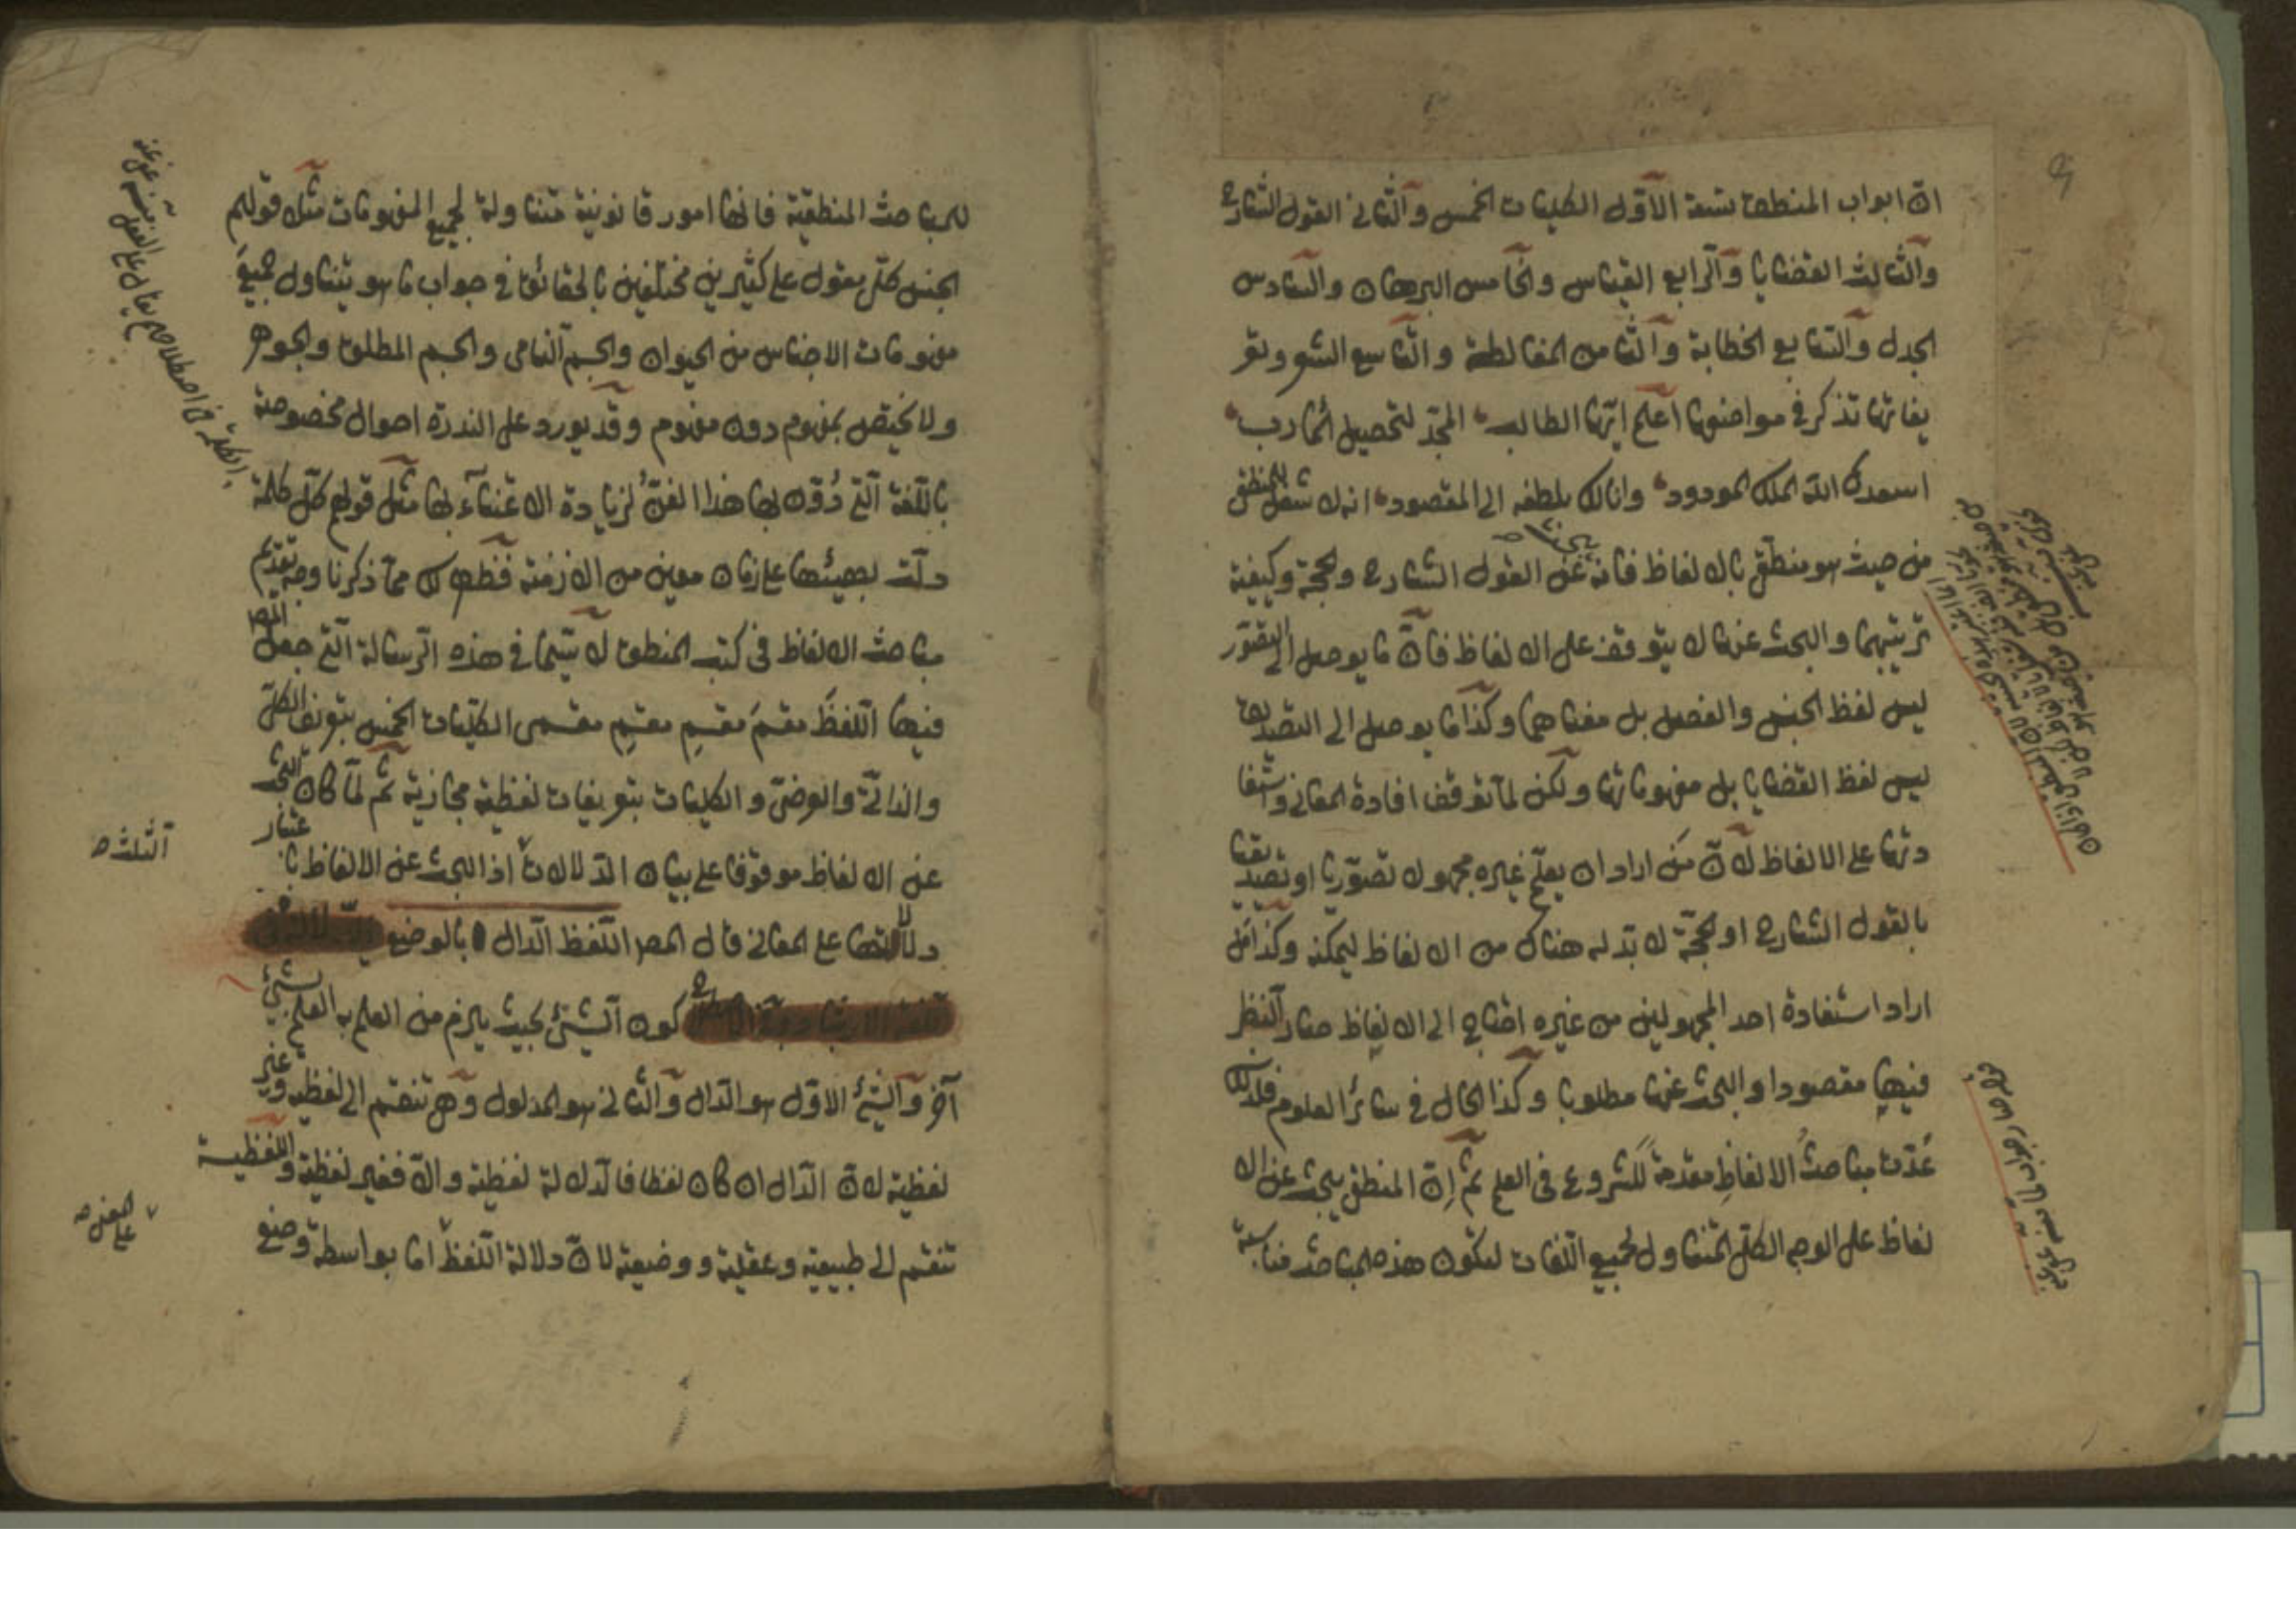 انّ ابواب المنطق تسعة الاوّل الكليات الخمس والثانى القول الشارح
والثالث القضايا والرابع القياس والخامس البرهان والسادس
الجدل والسابع الخطابة والثامن المغالطة والتاسع الشعر وتعر
يفاتها تذكر فى مواضعها اعلم ايّها الطالب المجدّ لتحصيل المآرب
اسعدك الله الملك الودود وانالك بلطفه الى المقصود انه لا شغل للمنطقى
من حيث هو منطقى بالالفاظ فانه يبحث عن القول الشارح والحجة وكيفية
ترتيبهما والبحث عنها لا يتوقف على الالفاظ فانّ ما يوصل الى التصوّر
ليس لفظ الجنس والفصل بل معناهما وكذا ما يوصل الى التصديق
ليس لفظ القضايا بل مفهوماتها ولكن لما توقف افادة المعانى واستفا
دتها على الالفاظ لانّ من اراد ان يعلّم غيره مجهولا تصوّريا او تصديقيا
بالقول الشارح او الحجّة لا بدّ له هناك من الالفاظ ليمكنه وكذا من
اراد استفادة احد المجهولين من غيره احتاج الى الالفاظ صار النظر
فيها مقصودا والبحث عنها مطلوبا وكذا الحال فى سائر العلوم فلذلك
عُدّت مباحثُ الالفاظِ مقدمةً للشروع فى العلم ثم إنّ المنطقى يبحث عن الا
لفاظ على الوجه الكلّى المتناول لجميع اللغات ليكون هذه المباحث مناسبة
للمباحث المنطقية فانها امور قانونية متناولة لجميع المفهومات مثل قولهم
الجنس كلّى مقول على كثيرين مختلفين بالحقائق فى جواب ما هو يتناول جميع
مفهومات الاجناس من الحيوان والجسم النامى والجسم المطلق والجوهر
ولا يختص بمفهوم دون مفهوم وقد يورد على الندرة احوال مخصوصة
باللغة التى دُوّن بها هذا الفنّ لزيادة الاعتناء بها مثل قولهم كلّ كلمة
دلّت بهيئتها على زمان معين من الازمنة فظهر لك ممّا ذكرنا وجه تقديم
مباحث الالفاظ فى كتب المنطق لا سيّما فى هذه الرسالة التى جعل المص
فيها اللفظَ مقسمَ مقسمِ مقسمِ مقسمى الكليّات الخمس بتعريف الكلّى
والذاتى والعرضىّ والكليات بتعريفات لفظية مجازية ثم لمّا كان البحث
عن الالفاظ موقوفا على بيان الدلالات اذ البحث عن الالفاظ باعتبار
دلالتها على المعانى قال المص اللفظ الدال بالوضع
كون الشئ بحيث يلزم من العلم به العلم بشئ
آخر والشئ الاوّل هو الدال والثانى هو المدلول وهى تنقسم الى لفظية وغير
لفظية لانّ الدّال ان كان لفظا فالدلالة لفظية والّا فغير لفظية واللفظية
تنقسم الى طبيعية وعقلية ووضعية لانّ دلالة اللفظ اما بواسطة وضع
الثلثة
على المعنى